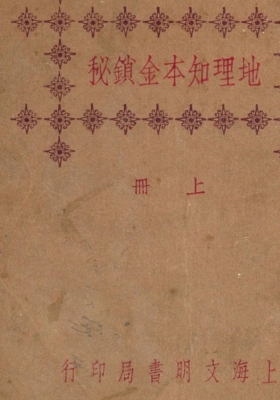 地理知本金鎖秘
上冊
上海文明書局印行